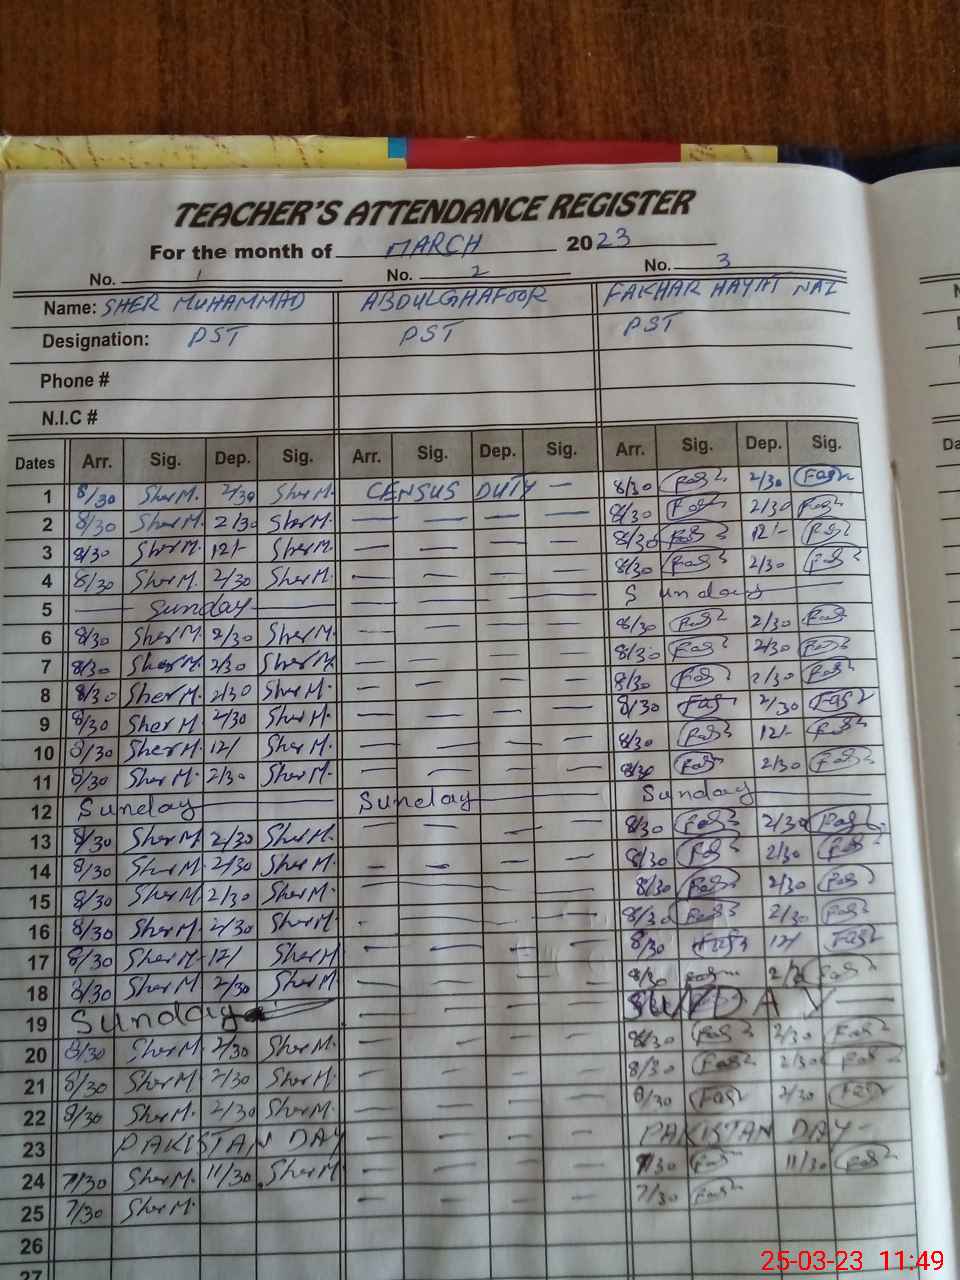 TEACHER'S ATTENDANCE REGISTER
For the month of MARCH 2023
No. 1 No. 2 No. 3
Name: SHER MUHAMMAD ABDULGHAFOOR FAKHAR HAYAT
Designation: PST PST PST
Phone #
N.I.C #
Dates Arr. Sig. Dep. Sig. Arr. Sig. Dep. Sig. Arr. Sig. Dep. Sig.
1 8/30 Sher M. 2/30 Sher M. CENSUS DUTY — 8/30 2/30
2 8/30 Sher M. 2/30 Sher M. — — — — 8/30 2/30
3 8/30 Sher M. 12/- Sher M. — — — — 8/30 12/-
4 8/30 Sher M. 2/30 Sher M. — — — — 8/30 2/30
5 — Sunday — — — — — Sunday —
6 8/30 Sher M. 2/30 Sher M. — — — — 8/30 2/30
7 8/30 Sher M. 2/30 Sher M. — — — — 8/30 2/30
8 8/30 Sher M. 2/30 Sher M. — — — — 8/30 2/30
9 8/30 Sher M. 2/30 Sher M. — — — — 8/30 2/30
10 8/30 Sher M. 12/ Sher M. — — — — 8/30 12/-
11 8/30 Sher M. 2/30 Sher M. — — — — 8/30 2/30
12 Sunday — Sunday — Sunday —
13 8/30 Sher M. 2/30 Sher M. — — — — 8/30 2/30
14 8/30 Sher M. 2/30 Sher M. — — — — 8/30 2/30
15 8/30 Sher M. 2/30 Sher M. — — — — 8/30 2/30
16 8/30 Sher M. 2/30 Sher M. — — — — 8/30 2/30
17 8/30 Sher M. 12/ Sher M. — — — — 8/30 12/
18 8/30 Sher M. 2/30 Sher M. — — — — 8/30 2/30
19 Sunday — — — — SUNDAY —
20 8/30 Sher M. 2/30 Sher M. — — — — 8/30 2/30
21 8/30 Sher M. 2/30 Sher M. — — — — 8/30 2/30
22 8/30 Sher M. 2/30 Sher M. — — — — 8/30 2/30
23 PAKISTAN DAY — — — — PAKISTAN DAY —
24 7/30 Sher M. 11/30 Sher M. — — — — 7/30 11/30
25 7/30 Sher M. — — — — 7/30
26
27
25-03-23 11:49